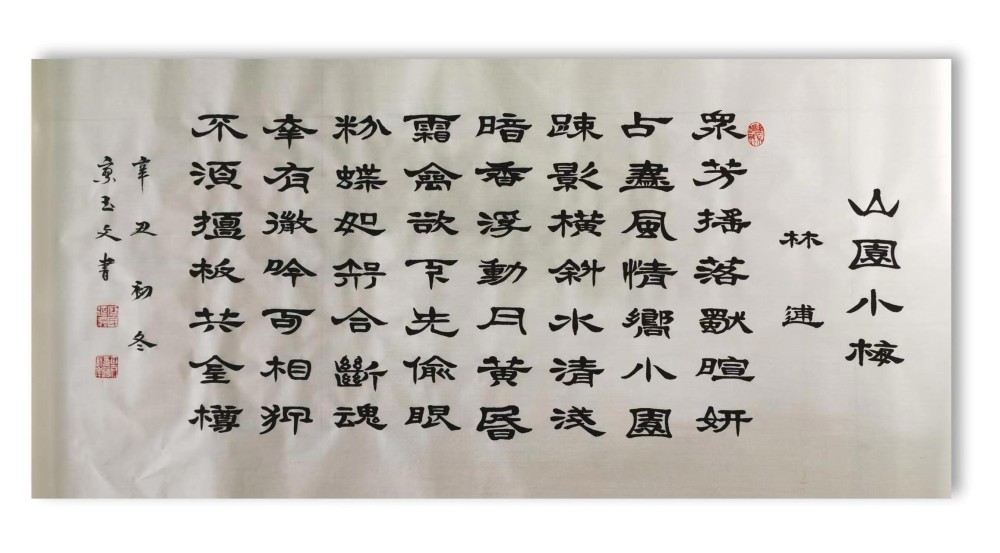 山園小梅
林逋
衆芳搖落獸暄妍
占盡風情嚮小園
踈影橫斜水清淺
暗香浮動月黃昏
霜禽欲下先偷眼
粉蝶如知合斷魂
幸有微吟可相狎
不須檀板共金樽
辛丑初冬
玉文書